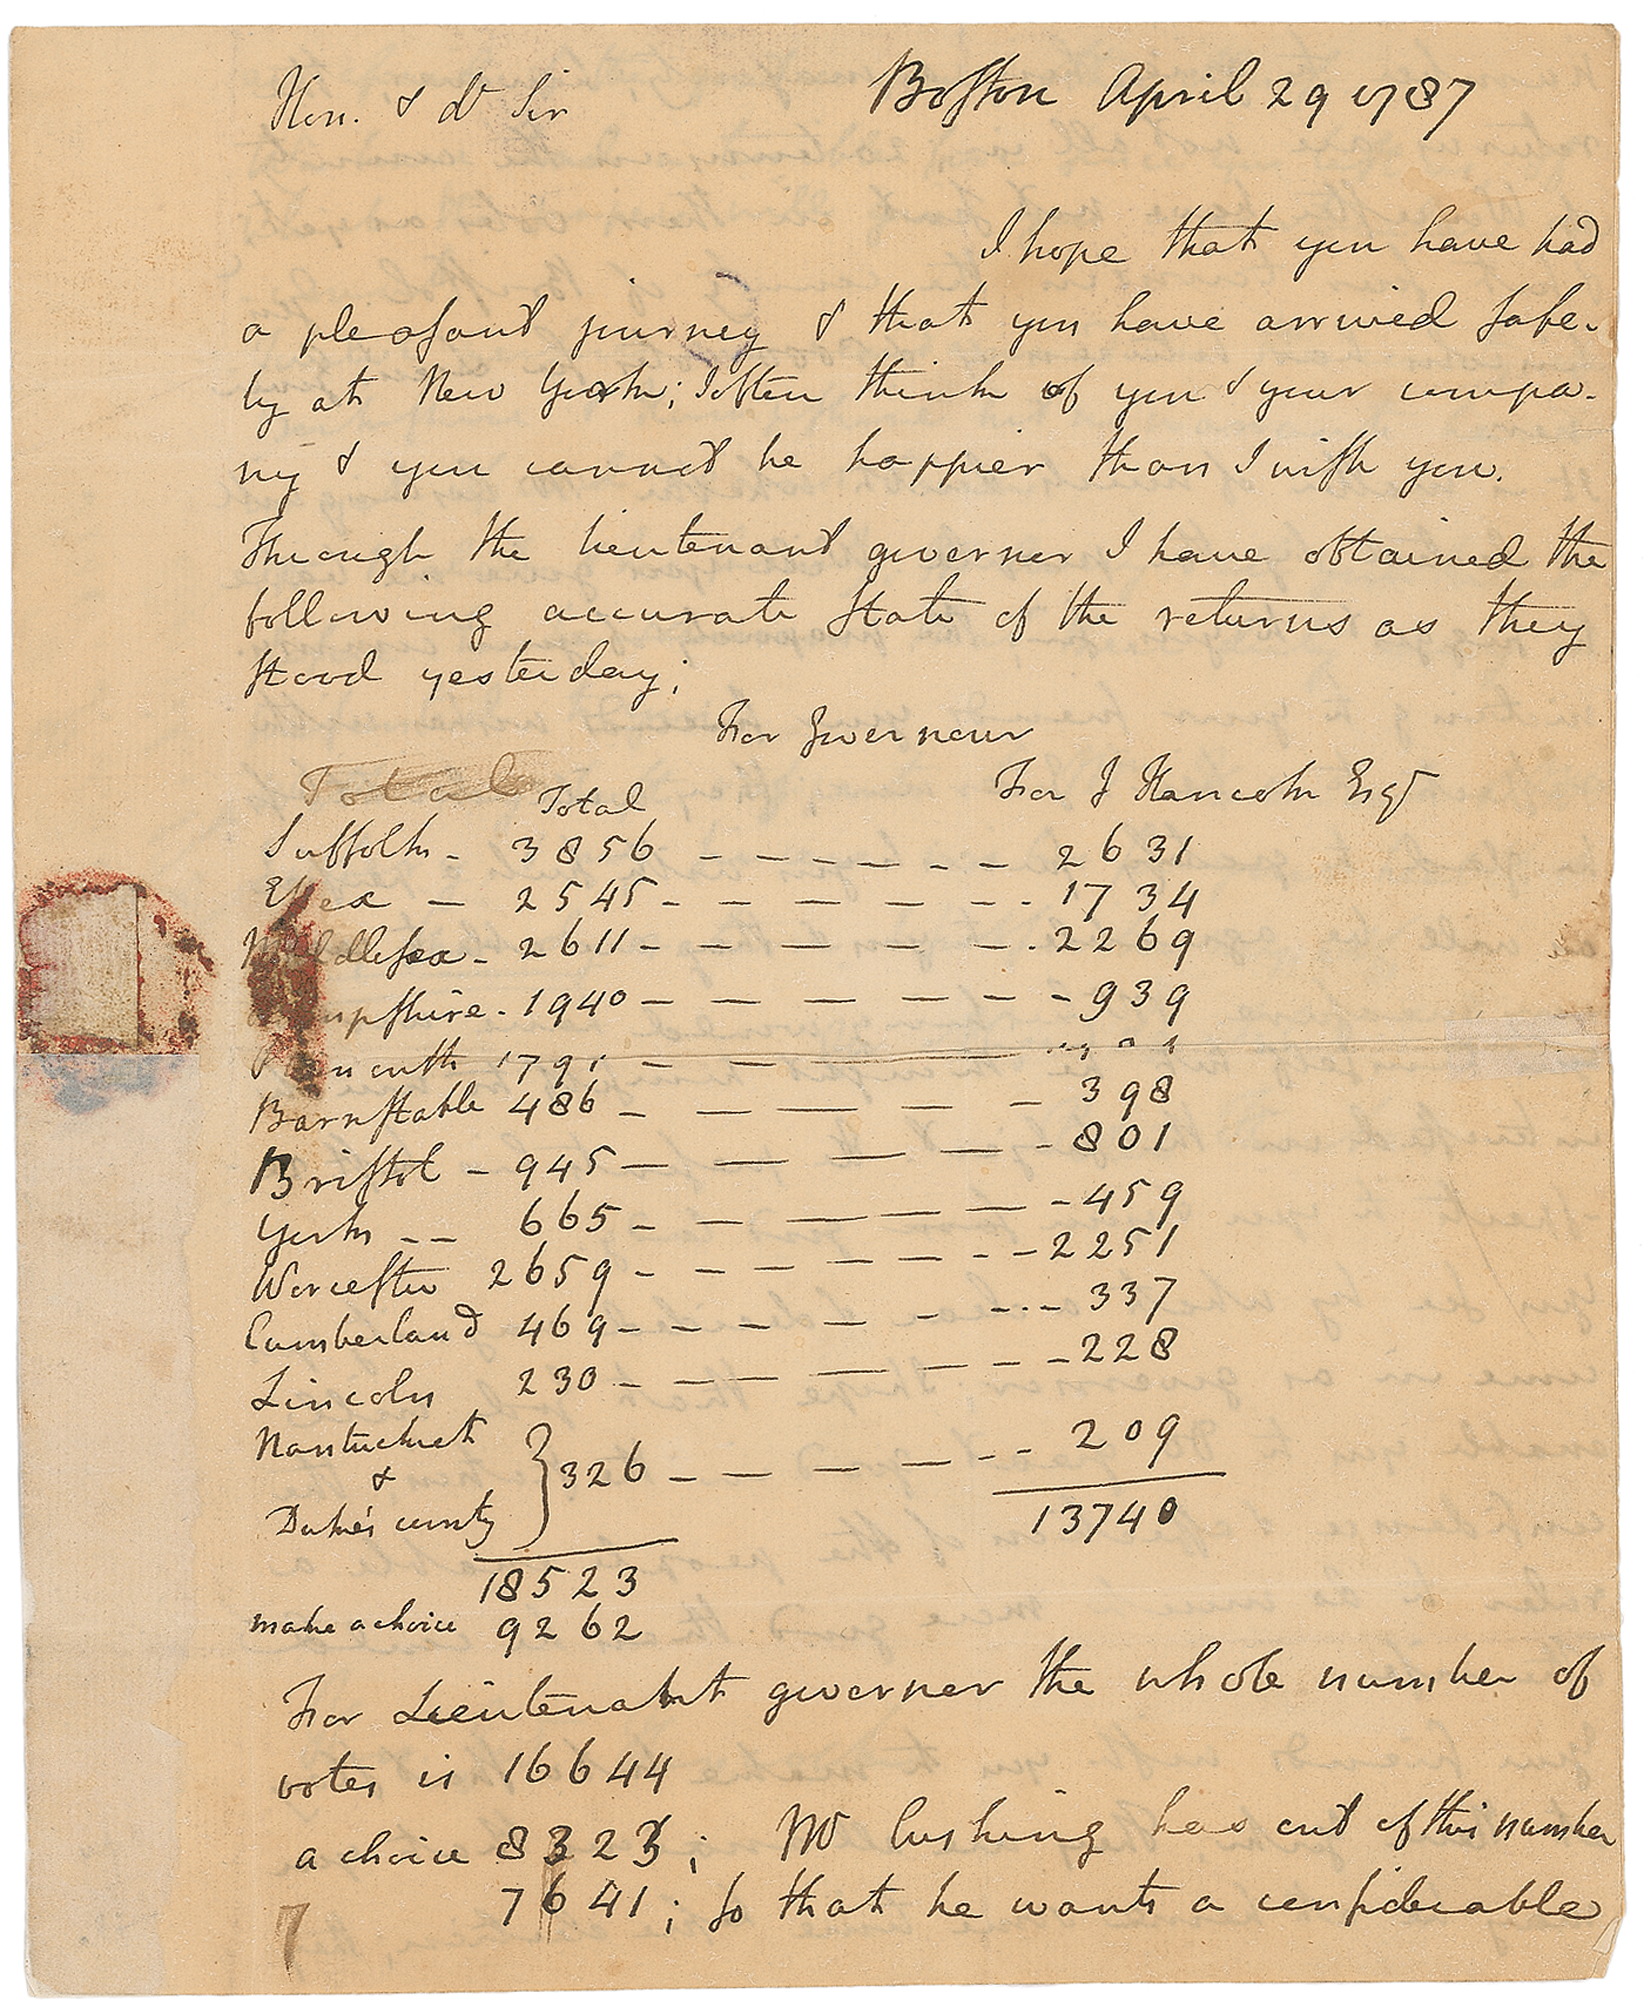 Hon. & dr Sir
Boston April 29 1787
I hope that you have had
a pleasant jurney & that you have arrived safe-
ly at New York; I often think of you & your compa-
ny & you cannot be happier than I wish you.
Through the lieutenant governer I have obtained the
following accurate state of the returns as they
stood yesterday;
For Governour
Total
Total For J Hancock Esqr
Suffolk - 3856 - - - - - - 2631
Essex - 2545 - - - - - - 1734
Middlesex - 2611 - - - - - - 2269
Hampshire - 1940 - - - - - - 939
Plimouth 1791 - - - - -
Barnstable 486 - - - - - 398
Bristol - 945 - - - - - 801
York - - 665 - - - - - - 459
Worcester 2659 - - - - - - - 2251
Cumberland 469 - - - - - - - - 337
Lincoln 230 - - - - - - - 228
Nantucket
&
Duke's county } 326 - - - - - - 209
13740
18523
make a choice 9262
For Lieutenant governer the whole number of
votes is 16644
a choice 8323; Mr Cushing has out of this number
7641; so that he wants a considerable
7